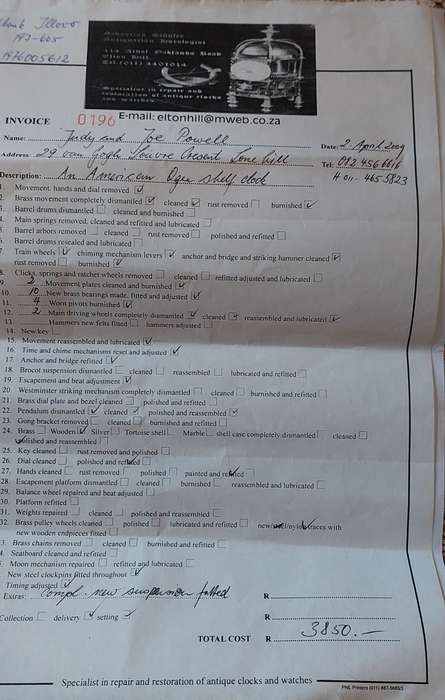 197-605
1976005612
Antiquarian Horologist
Tel: (011) 4401014
Specialist in repair and
restoration of antique clocks
and watches
INVOICE 0196 E-mail: eltonhill@mweb.co.za
Name: Judy and Joe Powell Date: 2 April 2009
Address: 29 van Gogh Louvre Cresent Lone hill Tel:
Description: An American Ogee shelf clock H 011- 465 5823
1. Movement, hands and dial removed ✓
2. Brass movement completely dismantled ✓ cleaned ✓ rust removed burnished ✓
3. Barrel drums dismantled cleaned and burnished
4. Main springs removed, cleaned and refitted and lubricated
5. Barrel arbors removed cleaned rust removed polished and refitted
6. Barrel drums resealed and lubricated
7. Train wheels ✓ chiming mechanism levers ✓ anchor and bridge and striking hammer cleaned ✓
rust removed burnished ✓
8. Clicks, springs and ratchet wheels removed cleaned refitted adjusted and lubricated
9. 2 Movement plates cleaned and burnished ✓
10. 10 New brass bearings made, fitted and adjusted ✓
11. 4 Worn pivots burnished ✓
12. 2 Main driving wheels completely dismantled ✓ cleaned ✓ reassembled and lubricated ✓
13. Hammers new felts fitted hammers adjusted
14. New key
15. Movement reassembled and lubricated ✓
16. Time and chime mechanisms reset and adjusted ✓
17. Anchor and bridge refitted ✓
18. Brocot suspension dismantled cleaned reassembled lubricated and refitted
19. Escapement and beat adjustment ✓
20. Westminster striking mechanism completely dismantled cleaned burnished and refitted
21. Brass dial plate and bezel cleaned polished and refitted
22. Pendulum dismantled ✓ cleaned ✓ polished and reassembled ✓
23. Gong bracket removed cleaned burnished and refitted
24. Brass Wooden ✓ Silver Tortoise shell Marble shell case completely dismantled cleaned
polished and reassembled
25. Key cleaned rust removed and polished
26. Dial cleaned polished and refitted
27. Hands cleaned rust removed polished painted and refitted
28. Escapement platform dismantled cleaned burnished reassembled and lubricated
29. Balance wheel repaired and beat adjusted
30. Platform refitted
31. Weights repaired cleaned polished and reassembled
32. Brass pulley wheels cleaned polished lubricated and refitted new/steel/nylon/traces with
new wooden endpieces fitted
3. Brass chains removed cleaned burnished and refitted
4. Seatboard cleaned and refitted
Moon mechanism repaired refitted and lubricated
New steel clockpins fitted throughout ✓
Timing adjusted ✓
Extras: Compl. new suspension fitted R
Collection delivery ✓ setting ✓ R
TOTAL COST R 3850.—
Specialist in repair and restoration of antique clocks and watches